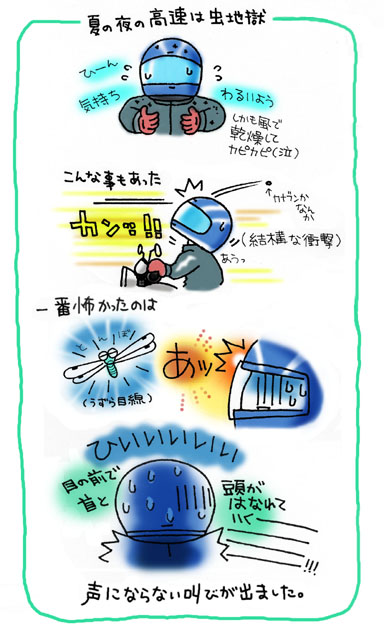 夏の夜の高速は虫地獄
ひーん
気持ち
わるいよう
しかも風で
乾燥して
カピカピ(泣)
こんな事もあった
カンッ!!
↑カナブンか
なんか
(結構な衝撃)
あうっ
一番怖かったのは
とんぼ
(うずら目線)
あッ
ひいいいいいい
目の前で
首と
頭が
はなれて
いく
!!!
声にならない叫びが出ました。